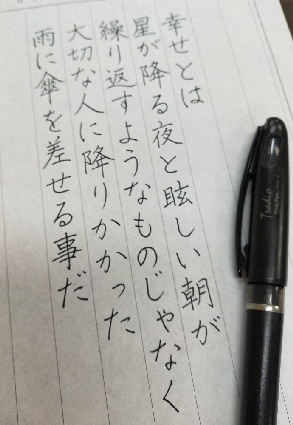 幸せとは
星が降る夜と眩しい朝が
繰り返すようなものじゃなく
大切な人に降りかかった
雨に傘を差せる事だ
Tradio